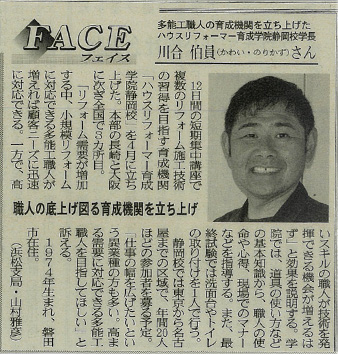 FACE
フェイス
多能工職人の育成機関を立ち上げた
ハウスリフォーマー育成学院静岡校学長
川合 伯員(かわい・のりかず)さん
12日間の短期集中講座で
複数のリフォーム施工技術
の習得を目指す育成機関
「ハウスリフォーマー育成
学院静岡校」を4月に立ち
上げた。本部の長崎と大阪
に次ぎ全国で3カ所目。
「リフォーム需要が増加
する中、小規模リフォーム
に対応できる多能工職人が
増えれば顧客ニーズに迅速
に対応できる。一方で、高
職人の底上げ図る育成機関を立ち上げ
いスキルの職人が技術を発
揮できる機会が増えるは
ず」と効果を説明する。学
院では、道具の使い方など
の基本知識から、職人の使
命や心得、現場でのマナー
などを指導する。また、最
終試験では洗面台やトイレ
の取り付けを1人で行う。
静岡校では東京から名古
屋までの区域で、年間20人
ほどの参加者を募る予定。
「仕事の幅を広げたいとい
う異業種の方も多い。高ま
る需要に対応できる多能工
職人を目指してほしい」と
訴える。
1974年生まれ、磐田
市在住。
(浜松支局・山村雅彦)